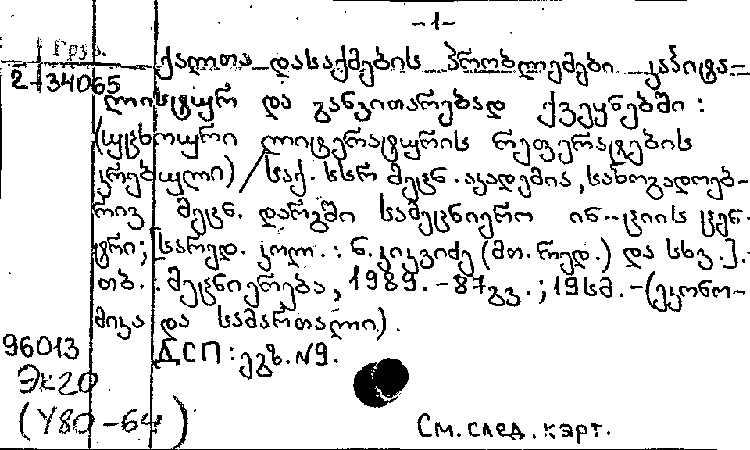 -1-
Груз.
2-34065
ქალთა დასაქმების პრობლემები კაპიტა-
ლისტურ და განვითარებად ქვეყნებში :
(უცხოური ლიტერატურის რეფერატების
კრებული) / საქ. სსრ მეცნ. აკადემია, საზოგადოებ-
რივ მეცნ. დარგში სამეცნიერო ინ-ციის ცენ.
ტრი; [სარედ. კოლ. : ნ. კიკვიძე (მთ. რედ.) და სხვ.].-
თბ. : მეცნიერება, 1989. - 87გვ. ; 19სმ. - (ეკონო-
მიკა და სამართალი).
96013 ДСП : ეგზ. №9.
Эк20
(У80-64)
См. след. карт.